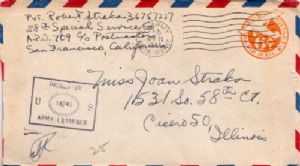 Pvt. Robert Straka 36757227
28th Special Service Co.
A.P.O. 709 c/o Postmaster
San Francisco, California
PASSED BY
U S
ARMY EXAMINER
Miss Joan Straka
1531 So. 58th Ct.
Cicero 50,
Illinois